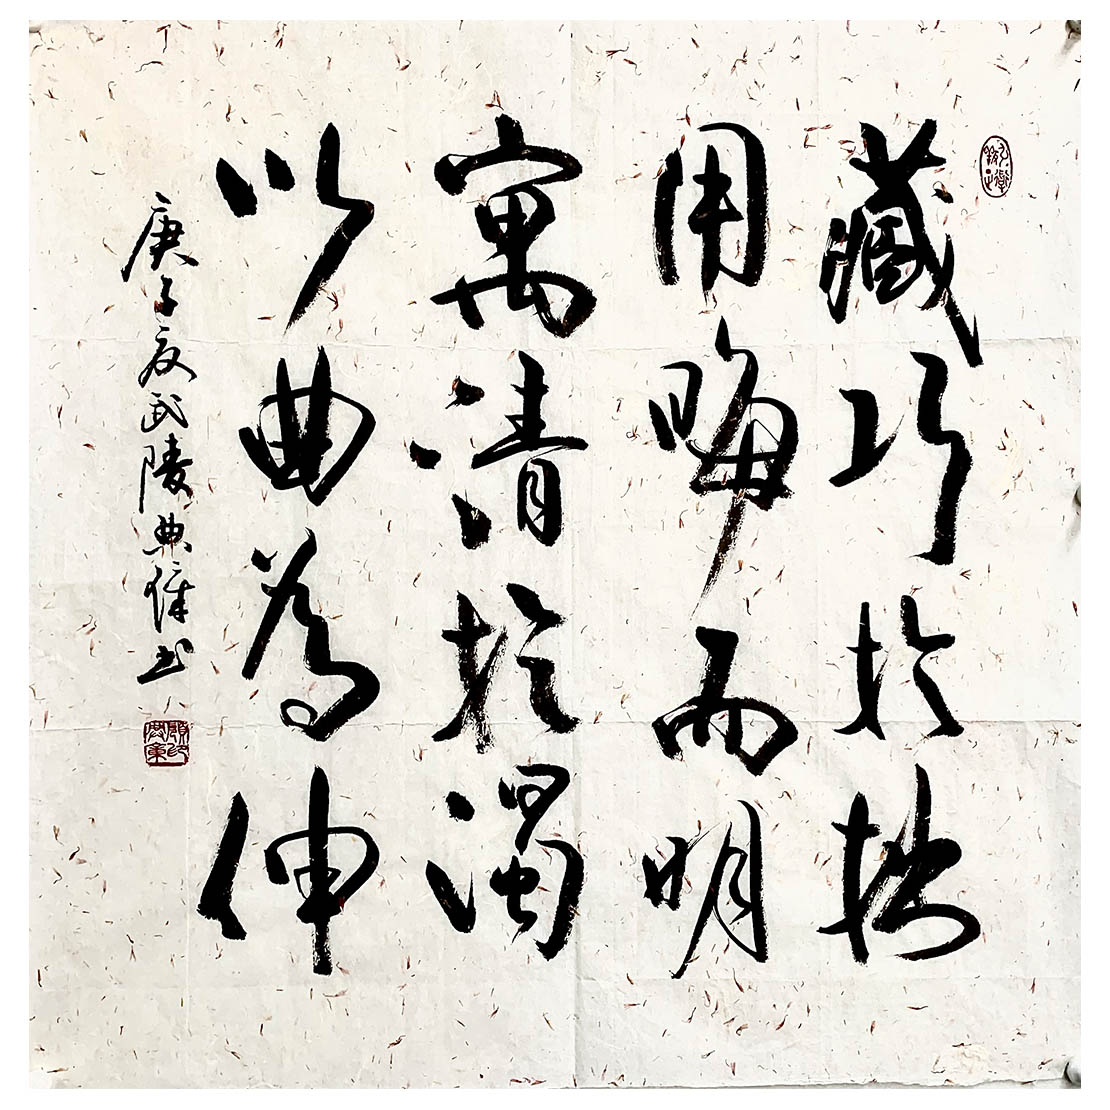 藏巧於拙
用晦而明
寓清於濁
以曲為伸
庚子夏武陵典偉书